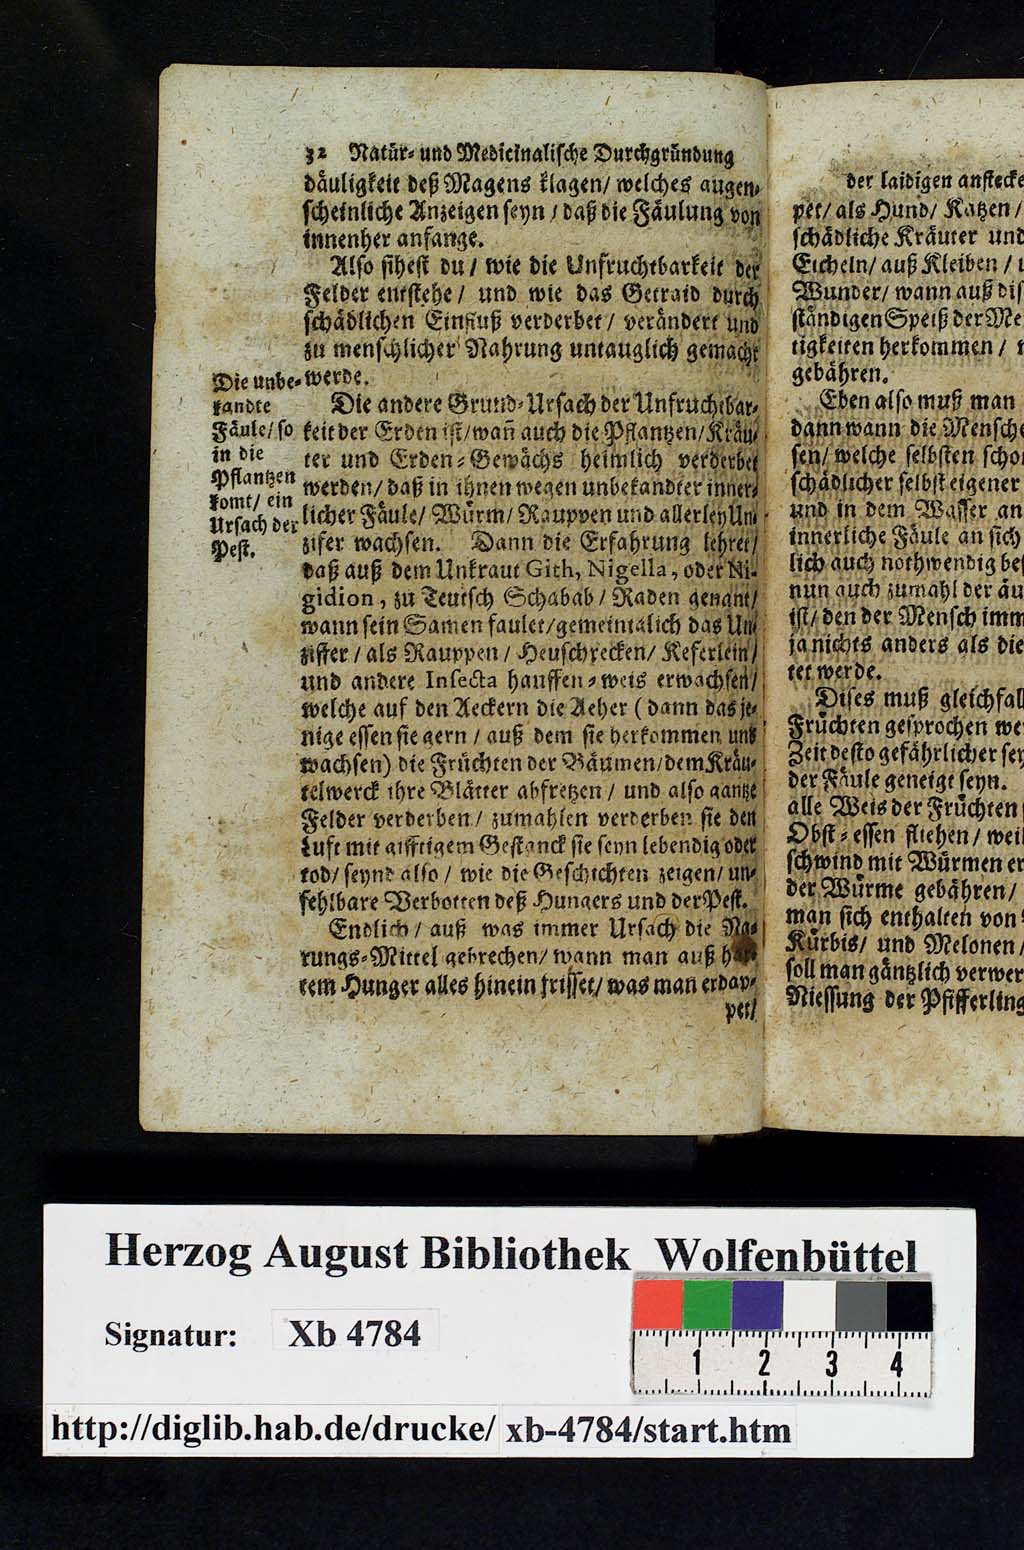 32 Natür- und Medicinalische Durchgründung
däuligkeit deß Magens klagen/ welches augen-
scheinliche Anzeigen seyn / daß die Fäulung von
innenher anfange.
Also sihest du / wie die Unfruchtbarkeit der
Felder entstehe / und wie das Getraid durch
schädlichen Einfluß verderbet / verändert und
zu menschlicher Nahrung untauglich gemacht
werde.
Die unbe-
kandte
Fäule/ so
in die
Pflantzen
komt/ ein
Ursach der
Pest.
Die andere Grund-Ursach der Unfruchtbar-
keit der Erden ist/wañ auch die Pflantzen/Kräu-
ter und Erden-Gewächs heimlich verderbet
werden/ daß in ihnen wegen unbekandter inner-
licher Fäule/ Würm/ Rauppen und allerley Un-
zifer wachsen. Dann die Erfahrung lehret/
daß auß dem Unkraut Gith, Nigella, oder Ni-
gidion, zu Teutsch Schabab / Raden genant/
wann sein Samen faulet/gemeintälich das Un-
ziffer / als Rauppen / Heuschrecken/ Keferlein/
und andere Insecta hauffen-weis erwachsen/
welche auf den Aeckern die Aeher ( dann das je-
nige essen sie gern / auß dem sie herkommen und
wachsen) die Früchten der Bäumen/dem Kräu-
telwerck ihre Blätter abfretzen / und also gantze
Felder verderben / zumahlen verderben sie den
Luft mit gifftigem Gestanck sie seyn lebendig oder
tod/ seynd also / wie die Geschichten zeigen/ un-
fehlbare Verbotten deß Hungers und der Pest.
Endlich / auß was immer Ursach die Na-
rungs-Mittel gebrechen/ wann man auß
tem Hunger alles hinein frisset/ was man erdap-
pet/
der laidigen anstecke
pet/ als Hund/ Katzen /
schädliche Kräuter und
Eicheln/ auß Kleiben /
Wunder/ wann auß dis
ständigen Speiß der Me
tigkeiten herkommen /
gebähren.
Eben also muß man
dann wann die Mensche
sen/ welche selbsten schon
schädlicher selbst eigener
und in dem Wasser an
innerliche Fäule an sich
lich auch nothwendig bes
nun auch zumahl der äu
ist/ den der Mensch imm
ja nichts anders als die
tet werde.
Dises muß gleichfall
Früchten gesprochen wer
Zeit desto gefährlicher sey
der Fäule geneigt seyn.
alle Weis der Früchten
Obst-essen fliehen / weil
schwind mit Würmen er
der Würme gebähren /
man sich enthalten von
Kürbis/ und Melonen /
soll man gäntzlich verwer
Niessung der Pfifferling
Herzog August Bibliothek Wolfenbüttel
Signatur: Xb 4784
1 2 3 4
http://diglib.hab.de/drucke/ xb-4784/start.htm